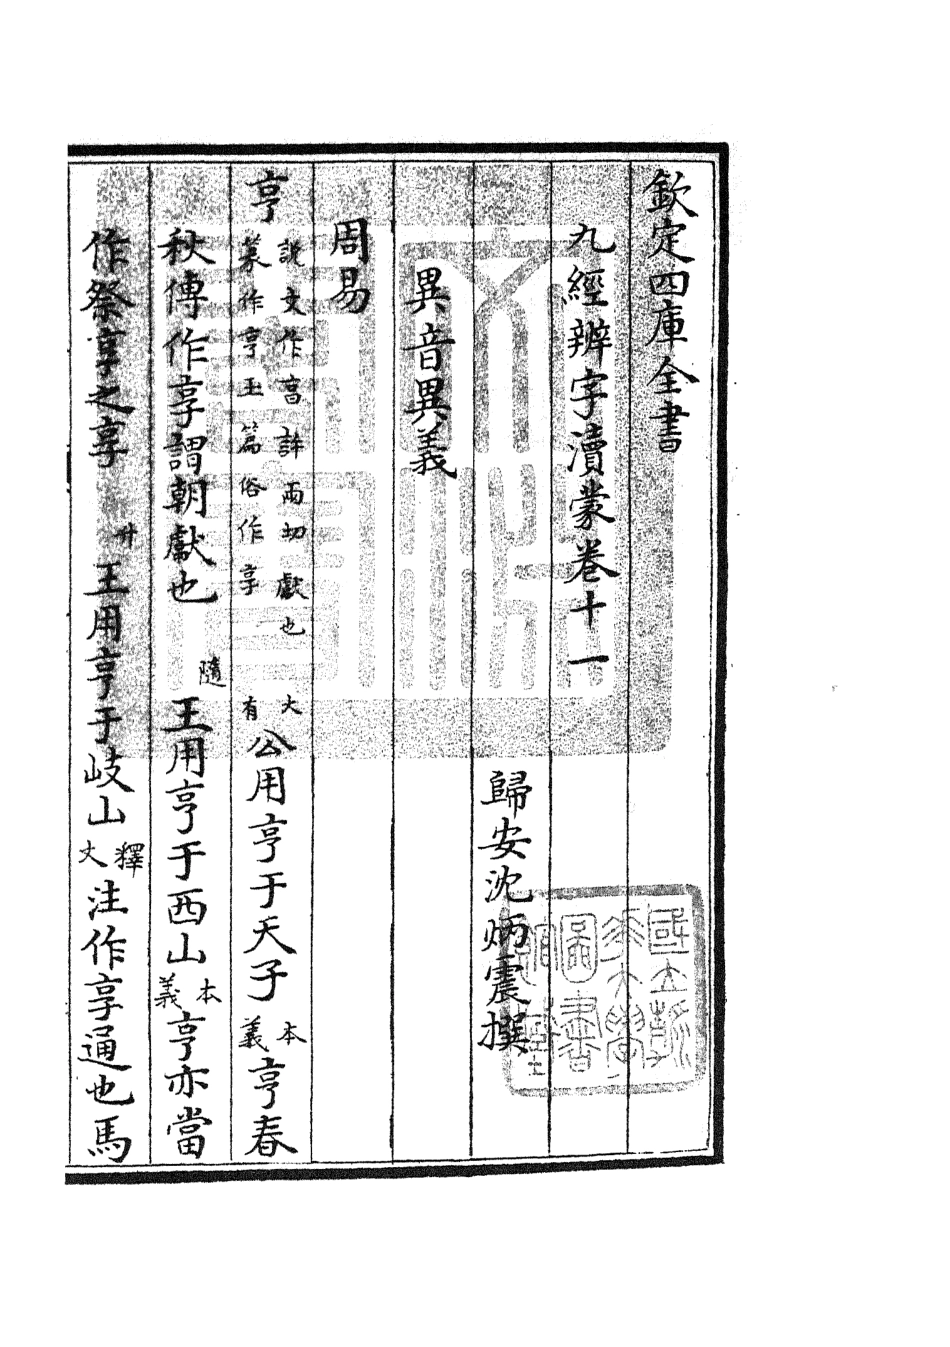 欽定四庫全書
九經辨字瀆蒙卷十一
歸安沈炳震撰
異音異義
周易
亨說文作亯許兩切獻也篆作亨玉篇俗作享大有公用亨于天子本義亨春
秋傳作享謂朝獻也隨王用亨于西山本義亨亦當
作祭享之享升王用亨于岐山釋文注作享通也馬